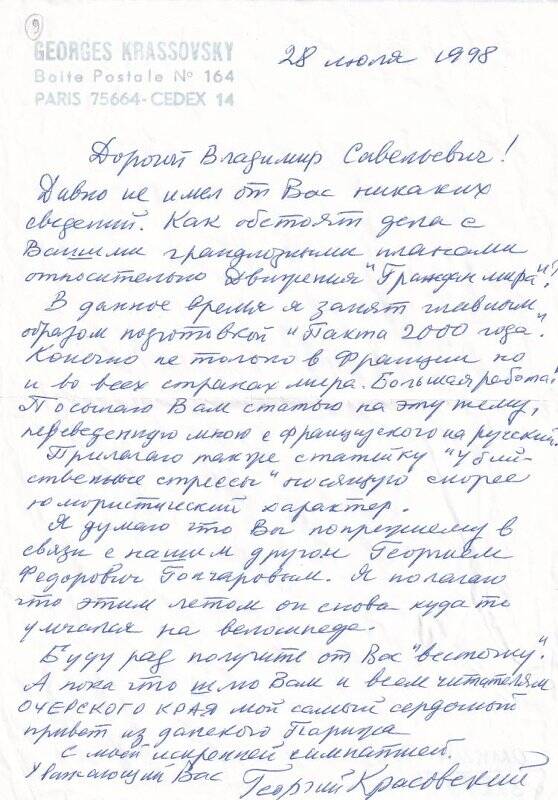 9
GEORGES KRASSOVSKY
Boite Postale No 164
PARIS 75664-CEDEX 14
28 июля 1998
Дорогой Владимир Савельевич!
Давно не имел от Вас никаких
сведений. Как обстоят дела с
Вашими грандиозными планами
относительно Движения "Граждан мира"?
В данное время я занят главным
образом подготовкой "Пакта 2000 года".
Конечно не только в Франции но
и во всех странах мира. Большая работа!
Посылаю Вам статью на эту тему,
переведенную мною с французского на русский.
Прилагаю также статейку "Убий-
ственные стрессы" носящую скорее
юмористический характер.
Я думаю что Вы попрежнему в
связи с нашим другом Георгием
Федорович Гончаровым. Я полагаю
что этим летом он снова куда то
умчался на велосипеде.
Буду рад получить от Вас "весточку".
А пока что шлю Вам и всем читателям
ОЧЕРСКОГО КРАЯ мой самый сердечный
привет из далекого Парижа
с моей искренней симпатией
Уважающий Вас Георгий Красовский